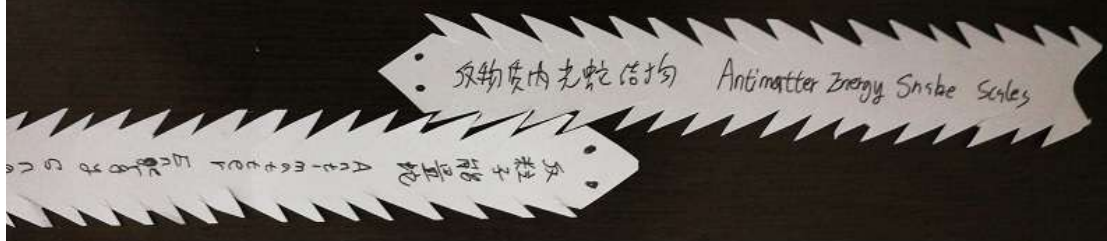 反物质内光蛇结构 Antimatter Energy Snake Scales
反粒子能量蛇 Antimatter Energy Sna